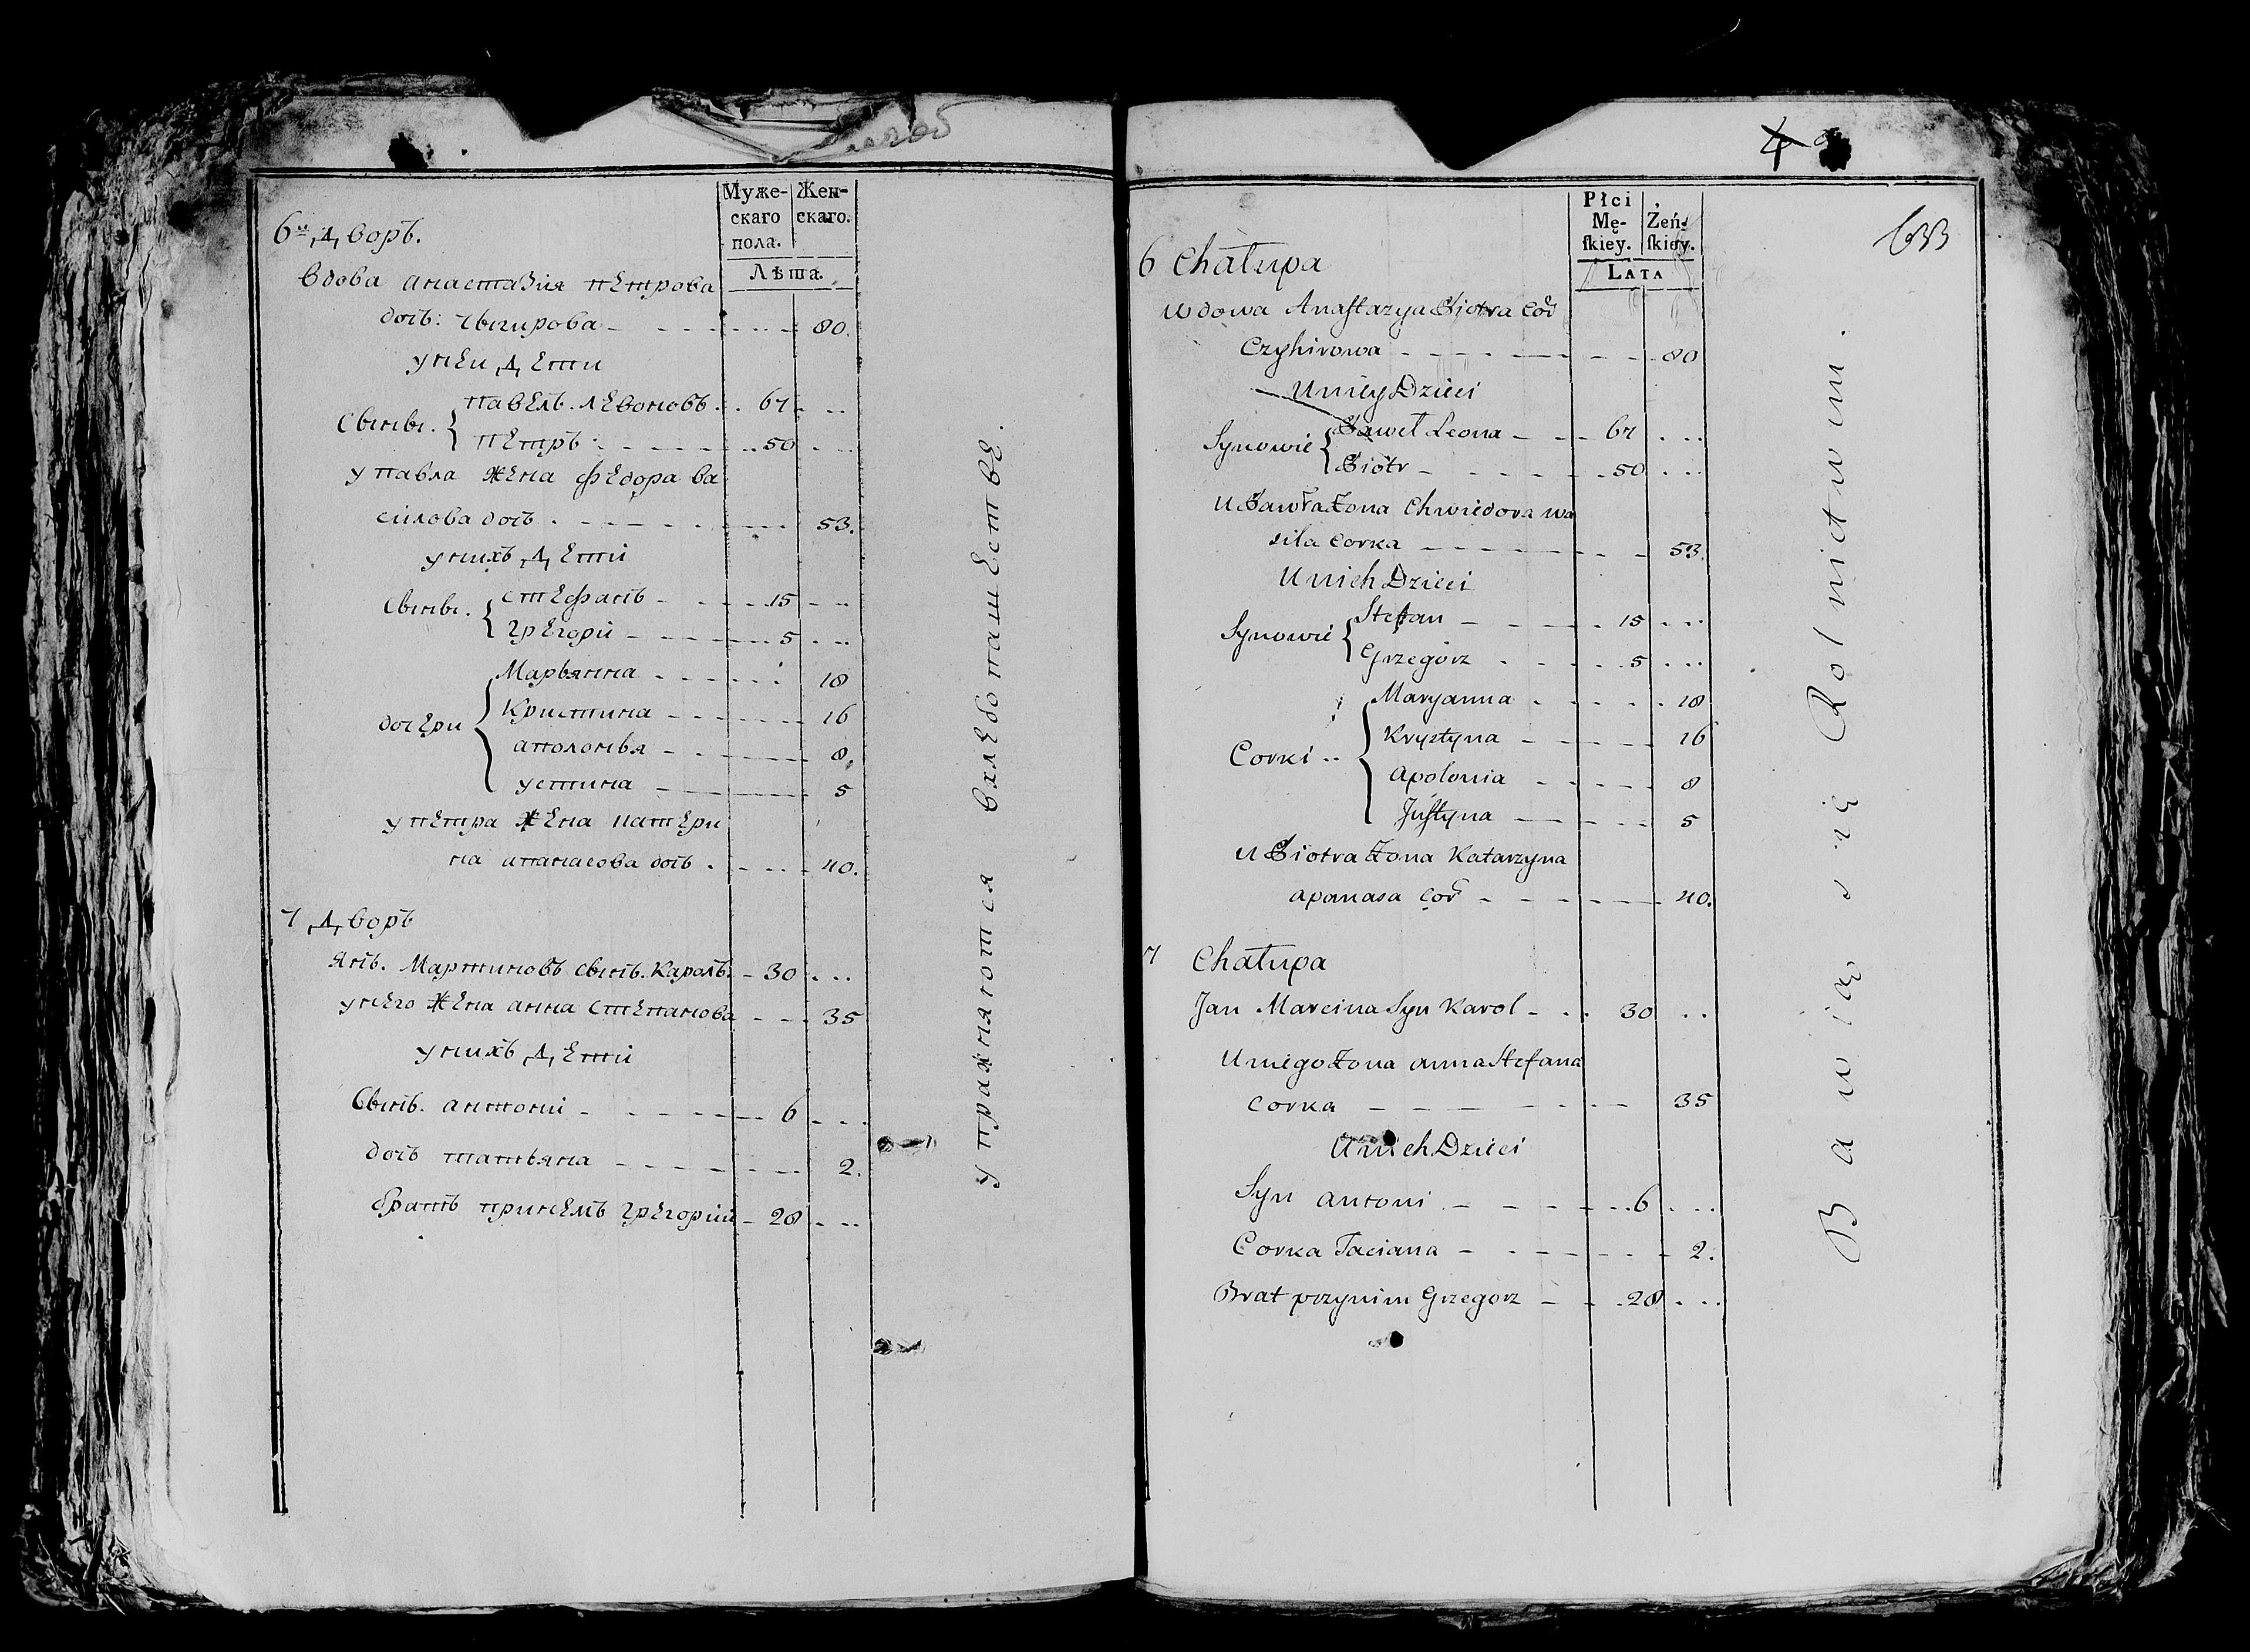 Муже-
скаго
пола.
Жен-
скаго.
Лѣта.
6й Дворъ.
Вдова анастазия петрова
дочъ: Чыгирова 80.
у ней Дети
Сыны. павелъ. левоновъ 67
петръ: 50
у павла жена федора ва
силова дочъ 53.
у нихъ Дети
Сыны. стефанъ 15
грегори 5
дочери Марьянна 18
Кристина 16
аполонья 8.
устина 5
у петра жена катери
на апанасова дочъ 40.
7 Дворъ
Янъ. Мартиновъ сынъ. Кароль. 30
у него жена анна степанова 35
у нихъ Дети
Сынъ. антони 6
дочъ татьяна 2.
братъ принемъ грегории 28
упражняются вхлебопашестве.
Płci
Mę-
ſkiey.
Żeń-
ſkiey.
Lata
633
6 Chałupa
Wdowa Anaſtazya Piotra Cor
Czyhirowa 80
U niey Dzieci
Synowie Paweł Leona 67
Piotr 50
U Pawła Zona Chwiedora wa
sila Corka 53.
U nich Dzieci
Synowie Stefan 15
Grzegorz 5
Corki Maryanna 18
Krystyna 16
Apolonia 8
Juſtyna 5
U Piotra Zona Katarzyna
apanasa Cor 40.
7 Chałupa
Jan Marcina Syn Karol 30
U niego Zona anna Stefana
corka 35
U nich Dzieci
Syn Antoni 6
Corka Taciana 2.
Brat przynim Grzegorz 28
Bawią się Rolnictwem.